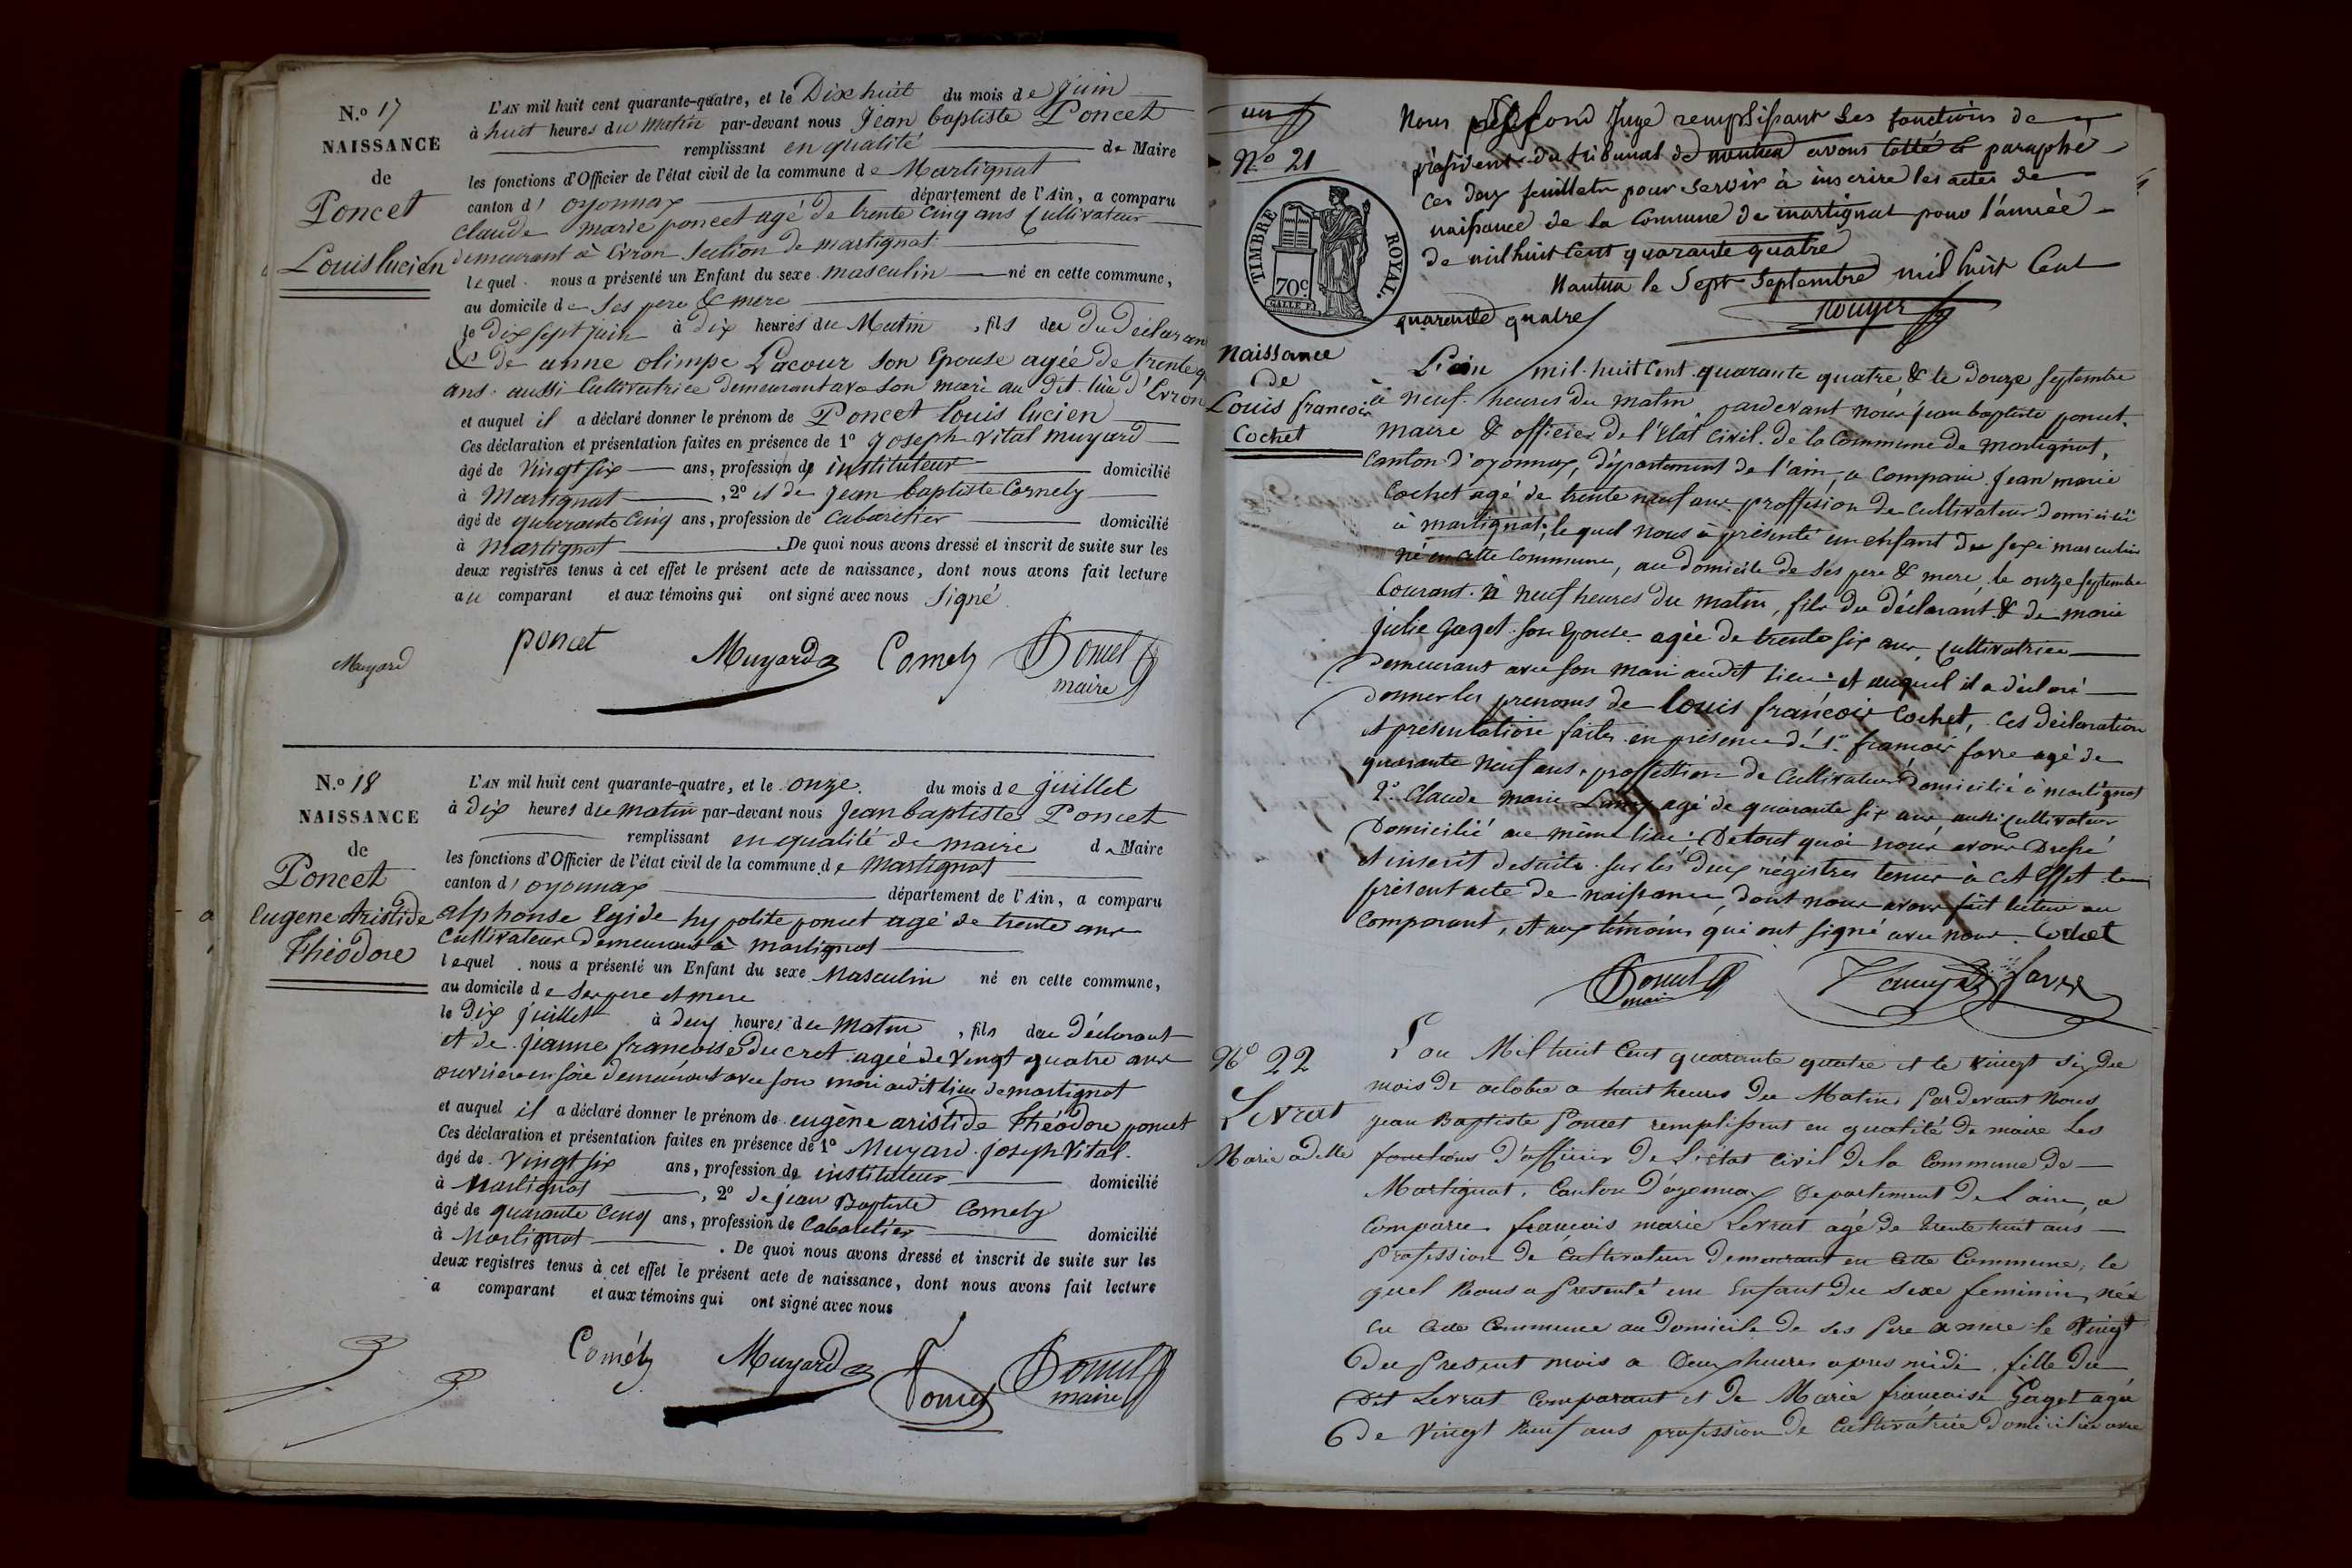 N.o 17
NAISSANCE
de
Poncet
Louis lucien
L'AN mil huit cent quarante-quatre, et le Dix huit du mois de juin
à huit heures du Matin par-devant nous Jean baptiste Poncet
remplissant en qualité de Maire
les fonctions d'Officier de l'état civil de la commune de Martignat
canton d' oyonnax département de l'Ain, a comparu
Claude marie poncet agé de trente cinq ans Cultivateur
demeurant à Evron Section de martignat
lequel nous a présenté un Enfant du sexe masculin né en cette commune,
au domicile de Ses pere & mere
le Dix sept juin à dix heures du Matin, fils du Déclarant
& de anne olimpe Lacour son Epouse agée de trente
ans aussi Cultivatrice demeurant avec son mari au dit lieu d'Evron
et auquel il a déclaré donner le prénom de Poncet louis lucien
Ces déclaration et présentation faites en présence de 1º Joseph vital muyard
âgé de Vingt six ans, profession de instituteur domicilié
à Martignat, 2º et de jean baptiste Cornely
âgé de quarante Cinq ans, profession de Cabaretier domicilié
à Martignat. De quoi nous avons dressé et inscrit de suite sur les
deux registres tenus à cet effet le présent acte de naissance, dont nous avons fait lecture
au comparant et aux témoins qui ont signé avec nous Signé
Muyard
poncet Muyard Cornely Poncet
maire
N.o 18
NAISSANCE
de
Poncet
Eugene Aristide
Théodore
L'AN mil huit cent quarante-quatre, et le onze du mois de juillet
à dix heures du matin par-devant nous Jean baptiste Poncet
remplissant en qualité de maire de Maire
les fonctions d'Officier de l'état civil de la commune de Martignat
canton d' oyonnax département de l'Ain, a comparu
alphonse Egide hypolite poncet agé de trente ans
Cultivateur demeurant à martignat
lequel nous a présenté un Enfant du sexe Masculin né en cette commune,
au domicile de Ses pere et mere
le Dix juillet à deux heures du Matin, fils du déclarant
et de jeanne francoise Ducret agée de Vingt quatre ans
ouvriere en soie demeurant avec son mari audit lieu de martignat
et auquel il a déclaré donner le prénom de eugène aristide Théodore poncet
Ces déclaration et présentation faites en présence de 1º Muyard joseph Vital
âgé de Vingt six ans, profession de instituteur domicilié
à Martignat, 2º de jean Baptiste Cornely
âgé de quarante Cinq ans, profession de Cabaretier domicilié
à Martignat. De quoi nous avons dressé et inscrit de suite sur les
deux registres tenus à cet effet le présent acte de naissance, dont nous avons fait lecture
a comparant et aux témoins qui ont signé avec nous
Cornély Muyard Poncet Poncet
maire
un
Nº 21
TIMBRE ROYAL.
70c
Nous Juge remplissant les fonctions de
président du tribunal de nantua avons cotté et paraphé
ces deux feuillets pour servir à inscrire les actes de
naissance de la Commune de martignat pour l'année
de mil huit Cent quarante quatre
Nantua le Sept Septembre mil huit Cent
quarante quatre
Rouyer
Naissance
de
Louis francois
Cochet
L'an mil huit Cent quarante quatre & le douze septembre
à neuf heures du matin, pardevant nous jean baptiste poncet
maire & officier de l'Etat Civil de la Commune de martignat,
Canton d'oyonnax, département de l'ain, a Comparu Jean marie
Cochet agé de trente neuf ans proffession de Cultivateur domicilié
à martignat, le quel nous à présenté un enfant du sexe masculin
né en cette commune, au domicile de sés pere & mere le onze septembre
Courant à neuf heures du matin, fils du déclarant & de marie
julie Gaget son Epouse agée de trente six ans, Cultivatrice
demeurant avec son mari audit lieu et auquel il a déclaré
donner les prenoms de louis françois Cochet, Ces déclaration
et présentation faites en présence de 1º francois favre agé de
quarante neuf ans, proffession de Cultivateur domicilié à martignat
2º Claude marie agé de quarante six ans aussi Cultivateur
Domicilié au même lieu. De tout quoi nous avons Dressé
et inscrit desuite sur les deux régistres tenus à cet effet le
présent acte de naissance, dont nous avons fait lecture au
Comparant, et aux témoins qui ont signé avec nous. Cochet
Poncet
maire
favre
Nº 22
Levrat
Marie adelle
L'an Mil huit Cent quarante quatre et le vingt six du
mois de octobre a huit heures du Matin, Pardevant Nous
jean Baptiste Poncet remplissent en qualité de maire Les
fonctions d'officier de L'état Civil de la Commune de
Martignat, Canton d'oyonnax Departement de Lain, a
Comparu francois marie Levrat agé de trente huit ans
Profession de Cultivateur demeurant en Cette Commune, le
quel Nous a Presenté un Enfant du sexe feminin, née
en Cette Commune au Domicile de ses Pere & mere le Vingt
du Present mois a Deux heures apres midi, fille du
Dit Levrat Comparant et de Marie francoise Gaget agée
de Vingt Neuf ans profession de Cultivatrice Domiciliée avec